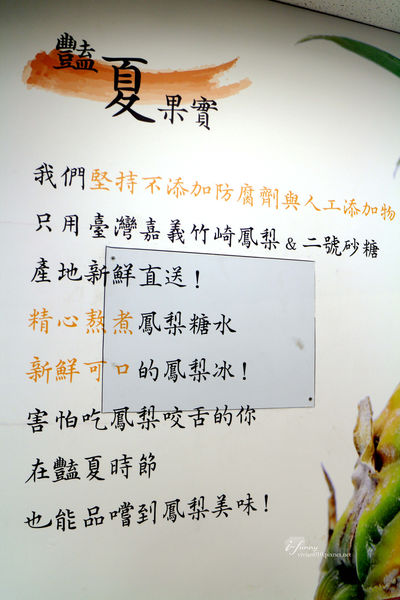 豔夏果實
我們堅持不添加防腐劑與人工添加物
只用臺灣嘉義竹崎鳳梨&二號砂糖
產地新鮮直送！
精心熬煮鳳梨糖水
新鮮可口的鳳梨冰！
害怕吃鳳梨咬舌的你
在豔夏時節
也能品嚐到鳳梨美味！